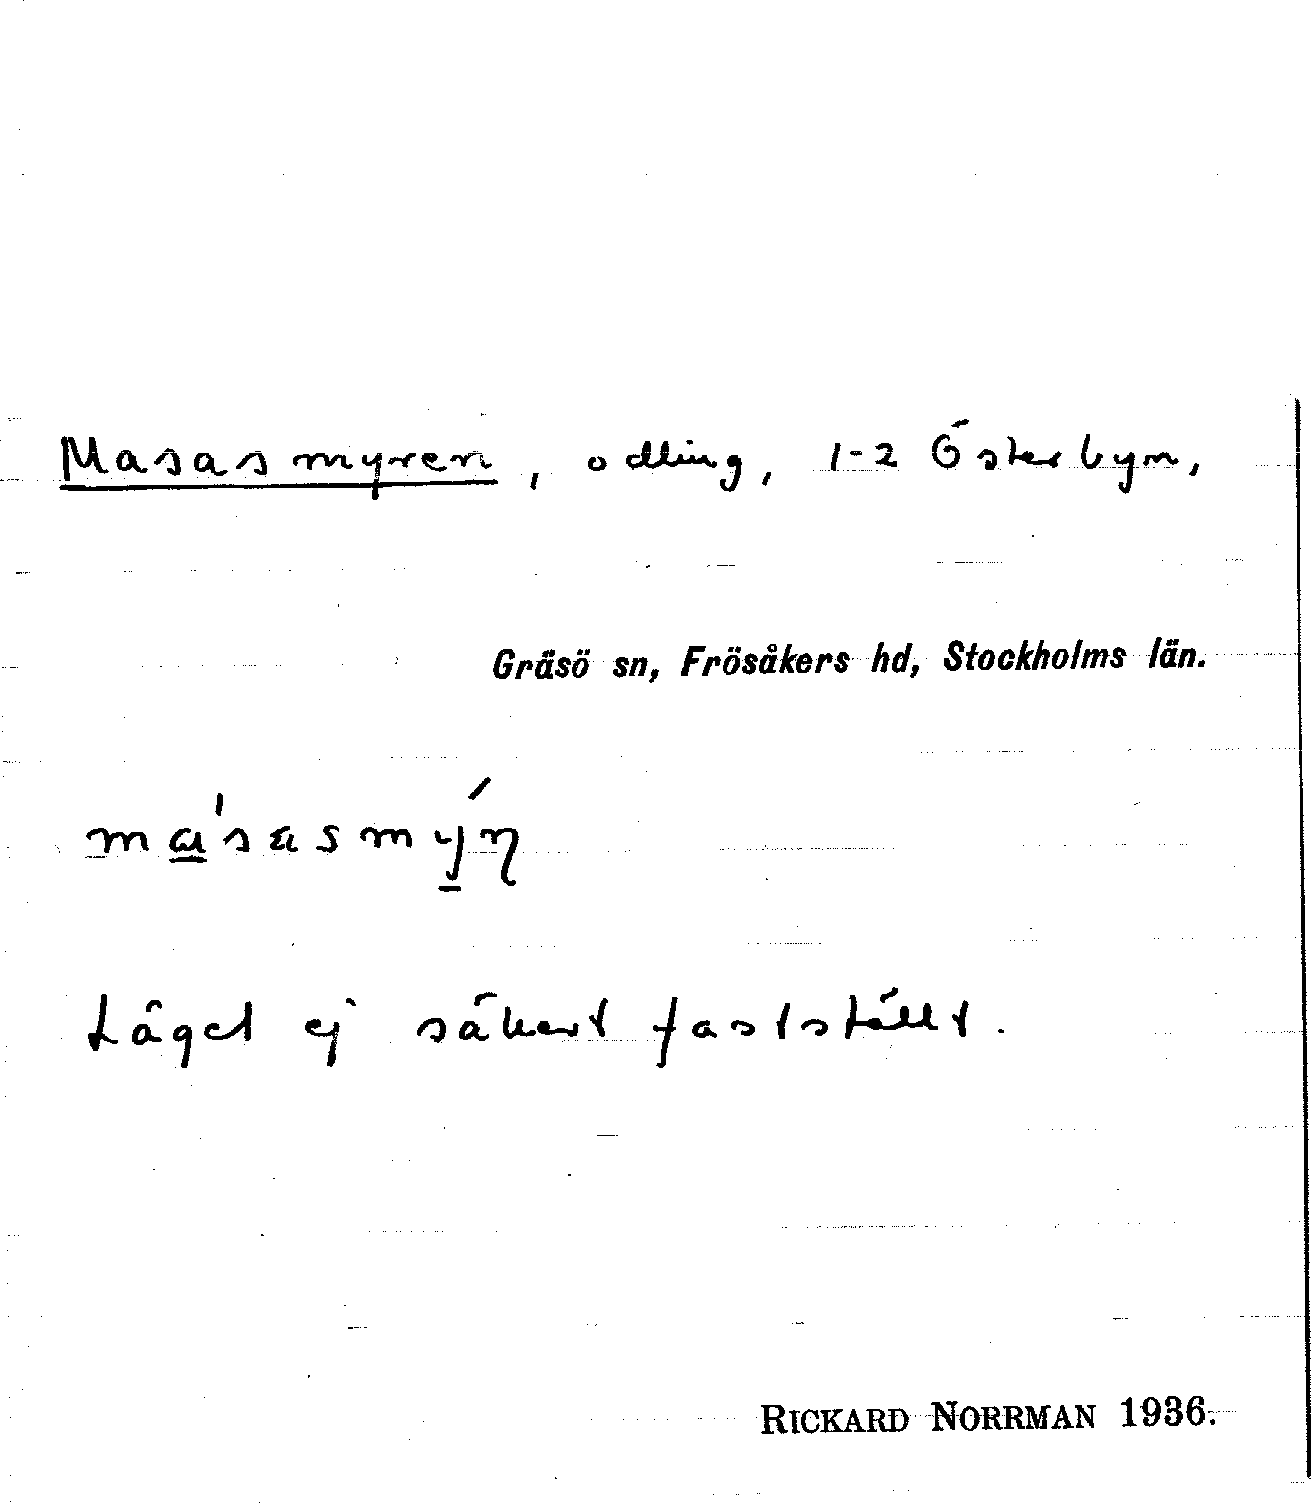 Masasmyren, odling, 1-2 Österbyn,
Gräsö sn, Frösåkers hd, Stockholms län.
ma̲'sasmý̲ŋ
Läget ej säkert fastställt.
RICKARD NORRMAN 1936.